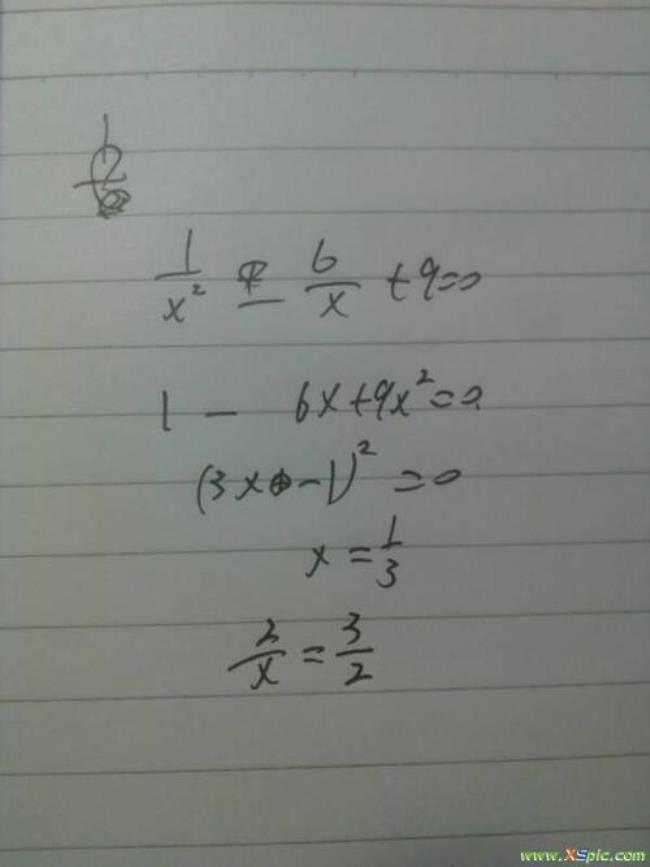 1/x² - 6/x + 9=0
1 - 6x+9x²=0.
(3x-1)²=0
x=1/3
2/x=3/2
www.XSpic.com